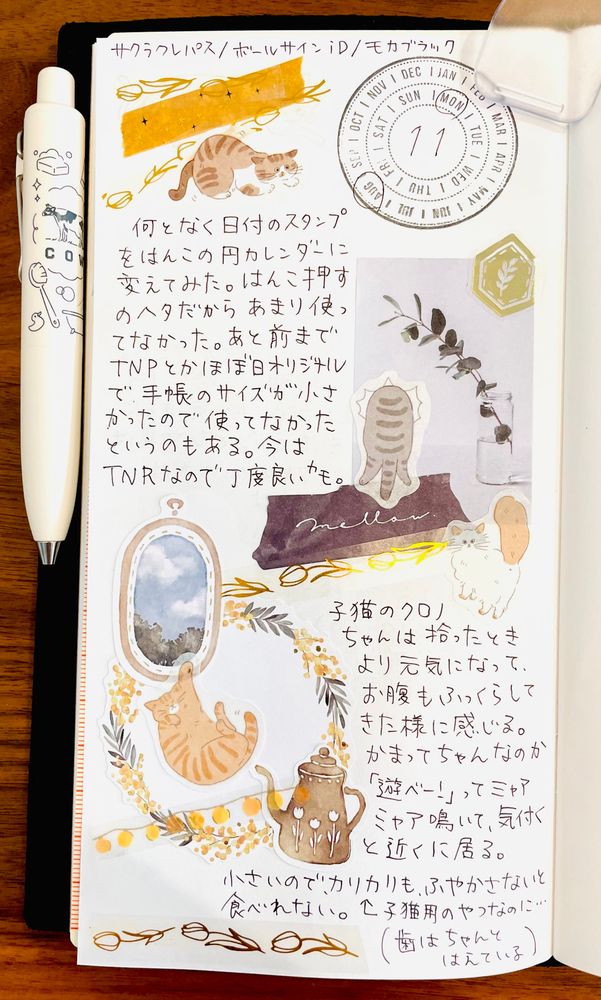 サクラクレパス/ボールサインiD/モカブラック
JAN FEB MAR APR MAY JUN JUL AUG SEP OCT NOV DEC
SUN MON TUE WED THU FRI SAT
11
何となく日付のスタンプ
をはんこの円カレンダーに
変えてみた。はんこ押す
のヘタだからあまり使っ
てなかった。あと前まで
TNPとかほぼ日オリジナル
で手帳のサイズが小さ
かったので使ってなかった
というのもある。今は
TNRなので丁度良いカモ。
mellow.
COW
子猫のクロノ
ちゃんは拾ったとき
より元気になって、
お腹もふっくらして
きた様に感じる。
かまってちゃんなのか
「遊べー!」ってミャア
ミャア鳴いて、気付く
と近くに居る。
小さいので、カリカリも、ふやかさないと
食べれない。↑子猫用のやつなのに…
(歯はちゃんと
はえている)